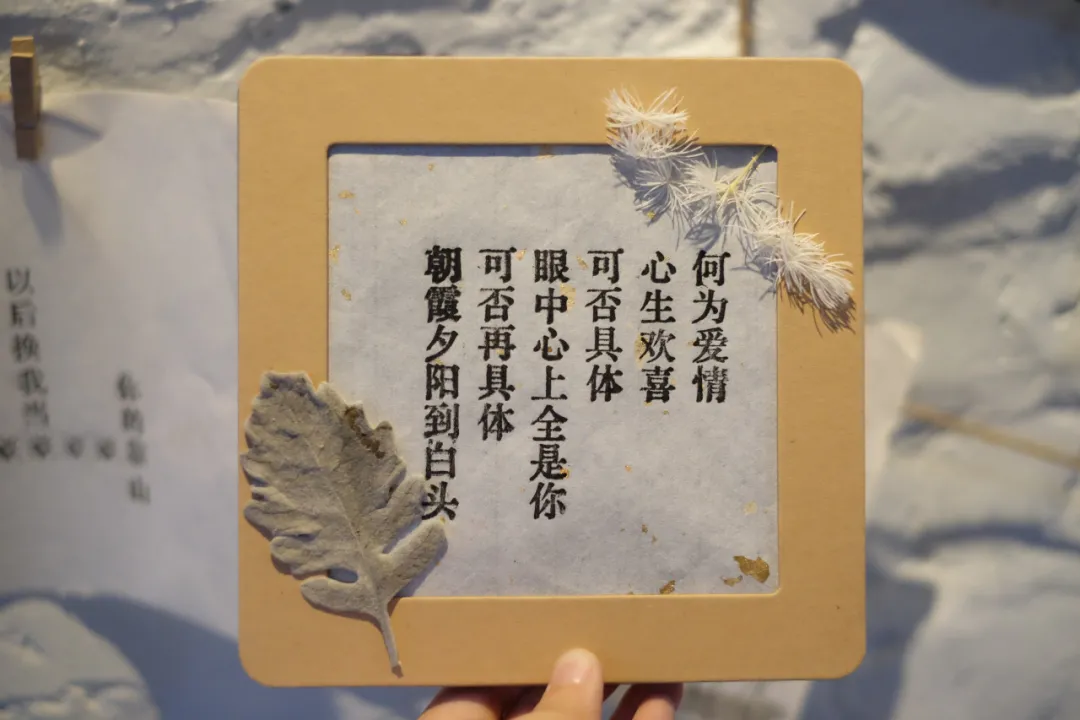 何为爱情
心生欢喜
可否具体
眼中心上全是你
可否再具体
朝霞夕阳到白头
以后换我当